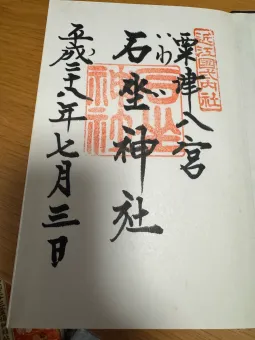 近江國式内社
粟津八宮
いわ
石坐神社
石坐神社
平成二八年七月三日